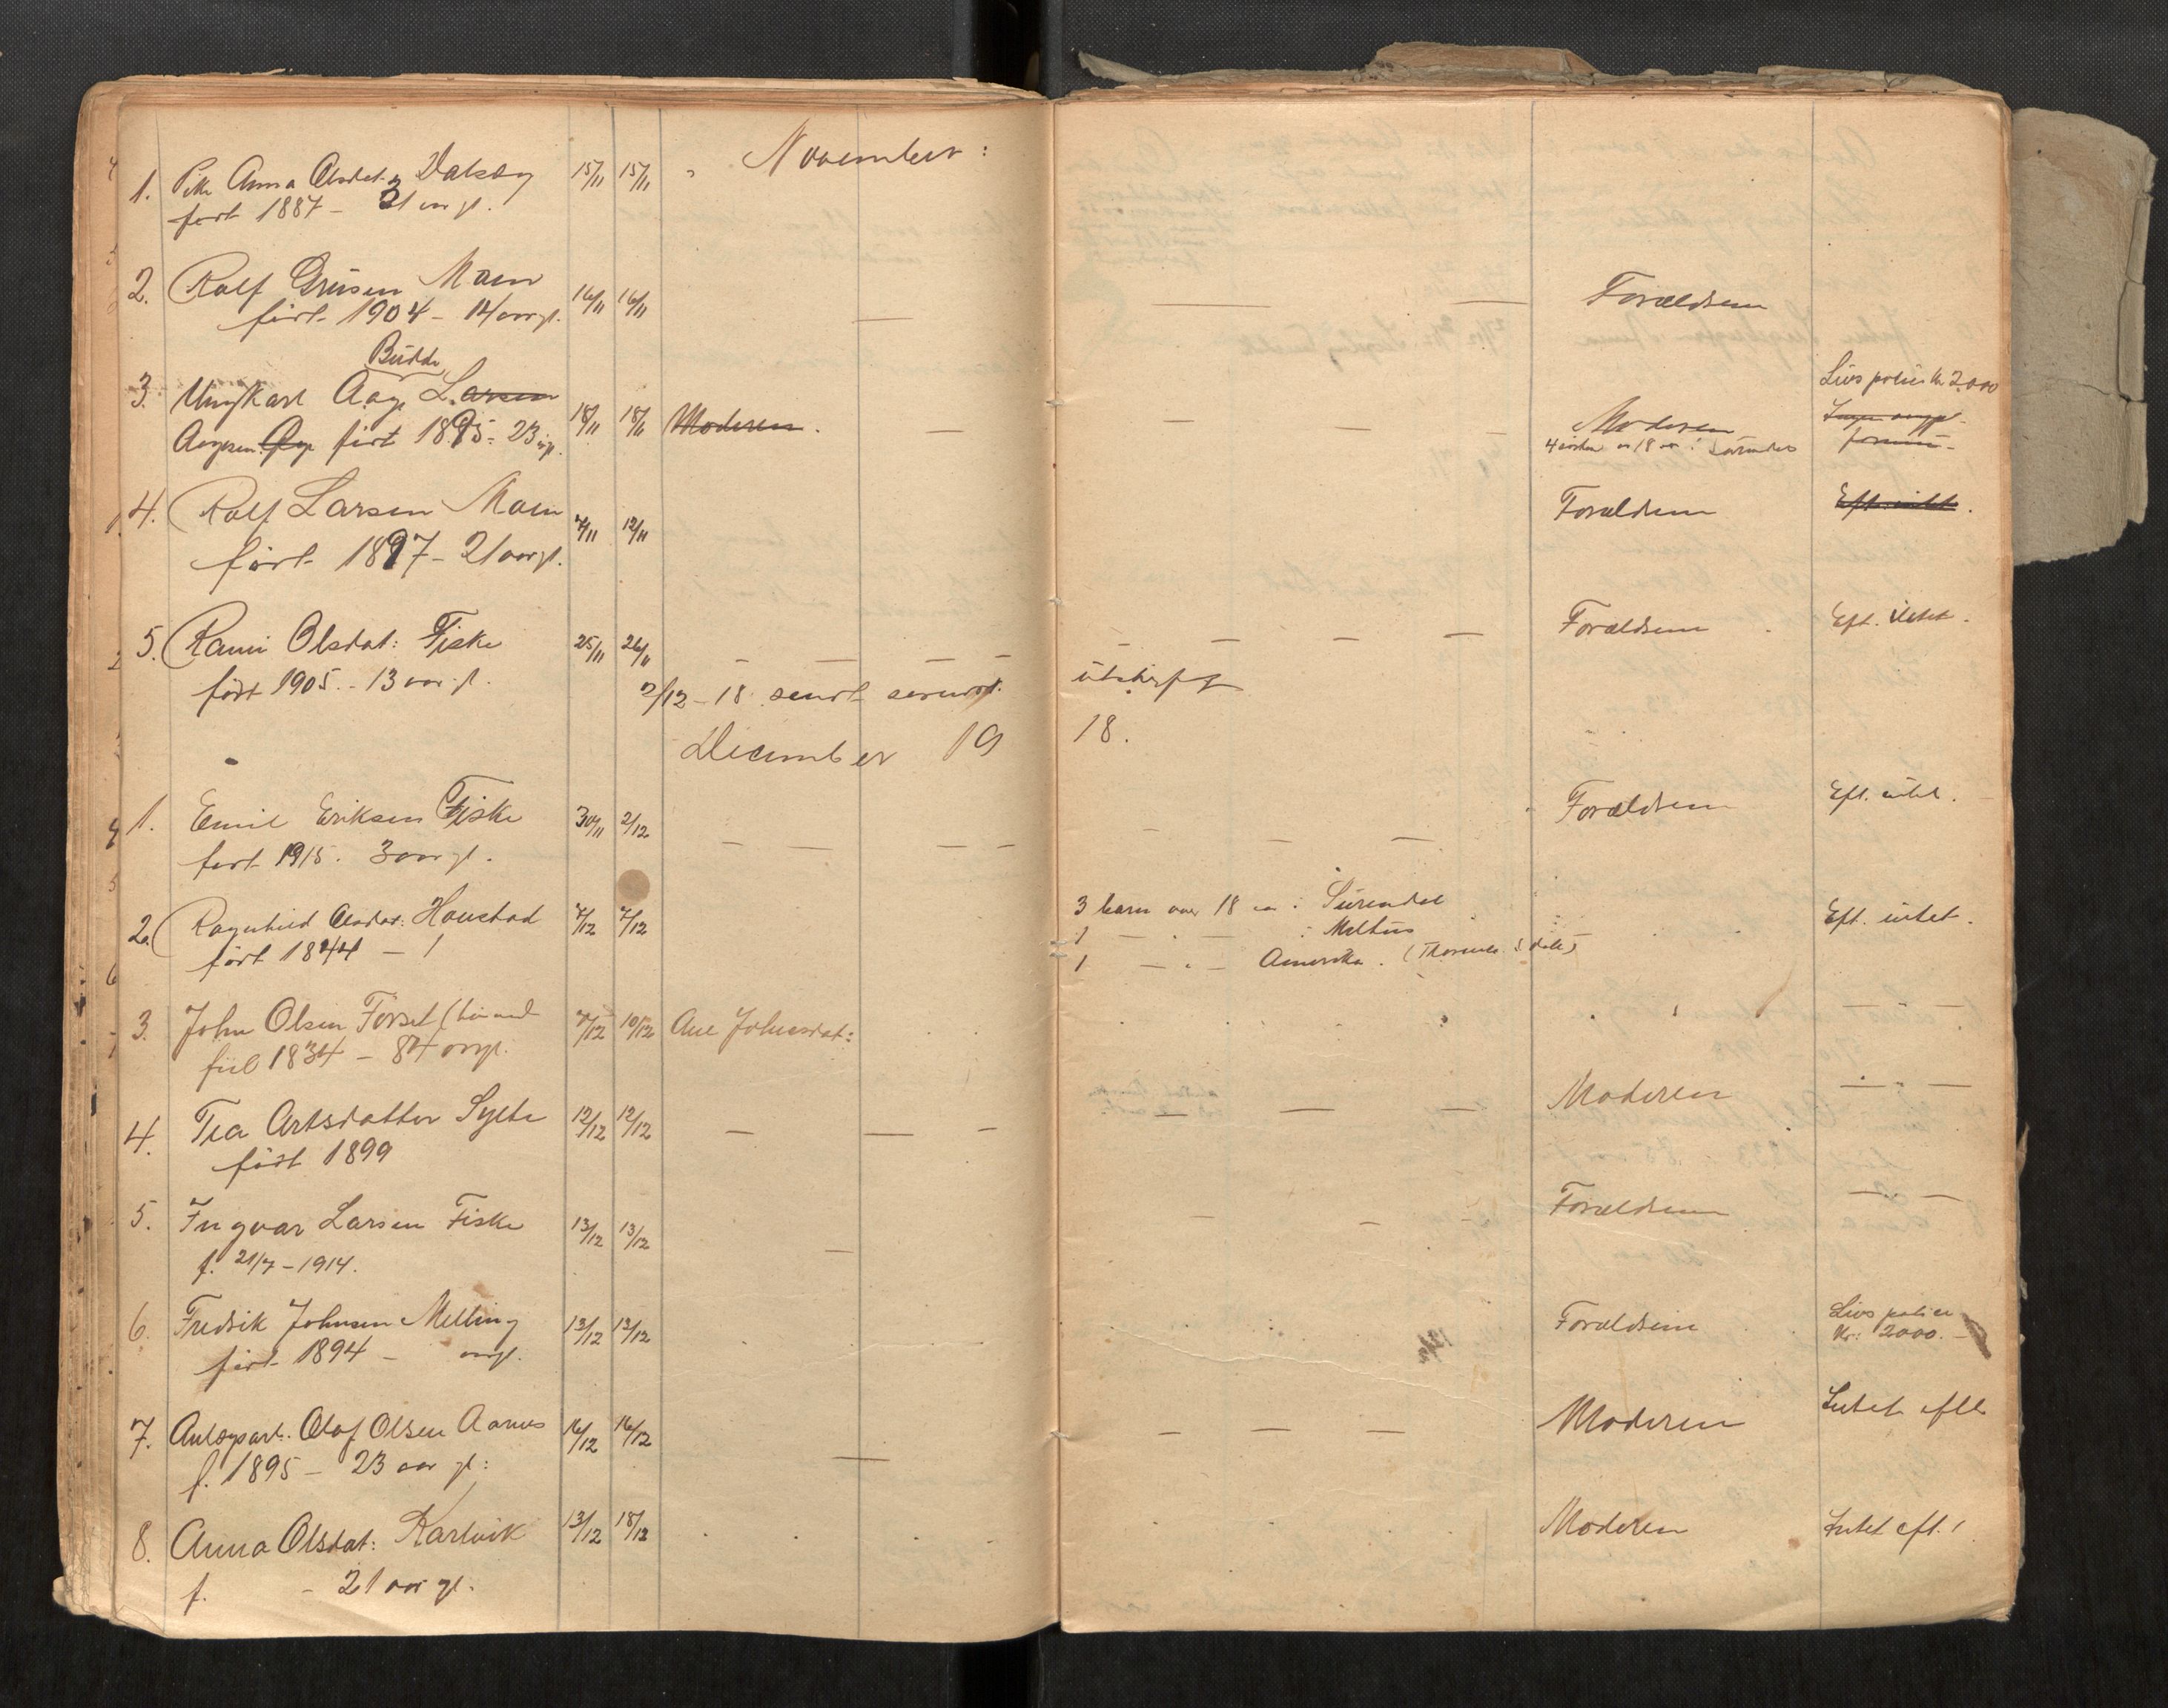 November:
1. Pike Anna Olsdat. Dalsøg 15/11 15/11
født 1887 - 31 aar gl.
2. Rolf Grüsen Moen 16/11 16/11 — — — Forældrene
født 1904 - 14 aar gl.
Budde
Livspolice kr 2000
3. Ungkarl Aage Larsen 18/11 18/11 Moderen. — — — — Moderen
Aagesen født 1895 - 23 4 søsken o. 18 aar: Surendal
4. Rolf Larsen Moen 7/11 12/11 Forældrene Eft. intet.
født 1897 - 21 aar gl.
5. Olsdat: Fiske 25/11 26/11 — — — — — — — — Forældrene. Eft. intet.
født 1905 - 13 aar gl. 2/12-18 sendt utskrift
December 1918.
1. Emil Eriksen Fiske 30/11 2/12 — — — — — — — Forældrene Eft. intet.
født 1915. 3 aar gl.
2. Ragnhild Olsdat: Haustad 7/12 7/12 3 barn over 18 aar: Surendal Eft. intet.
født 1844 - 1 — " — : Melhus
1 — " — Amerika.
3. John Olsen Forset 7/12 10/12 Ane Johnsdat: — " —
1834 - 84 aar gl.
4. Tea Artsdatter Sylte 12/12 12/12 — — — — — — Moderen — " —
født 1899
5. Ingvar Larsen Fiske 13/12 13/12 — — — — Forældrene — " —
f. 21/7 - 1914.
6. Fredrik Johnsen Melling 13/12 13/12 Forældrene Livspolice
født 1894 - aar gl. Kr: 2000. -
7. Olaf Olsen Aarnes 16/12 16/12 — — — — Moderen Intet eftl.
f. 1895 - 23 aar gl:
8. Anna Olsdat: Karlvik 13/12 18/12 Moderen Intet eft.!
f. - 21 aar gl.